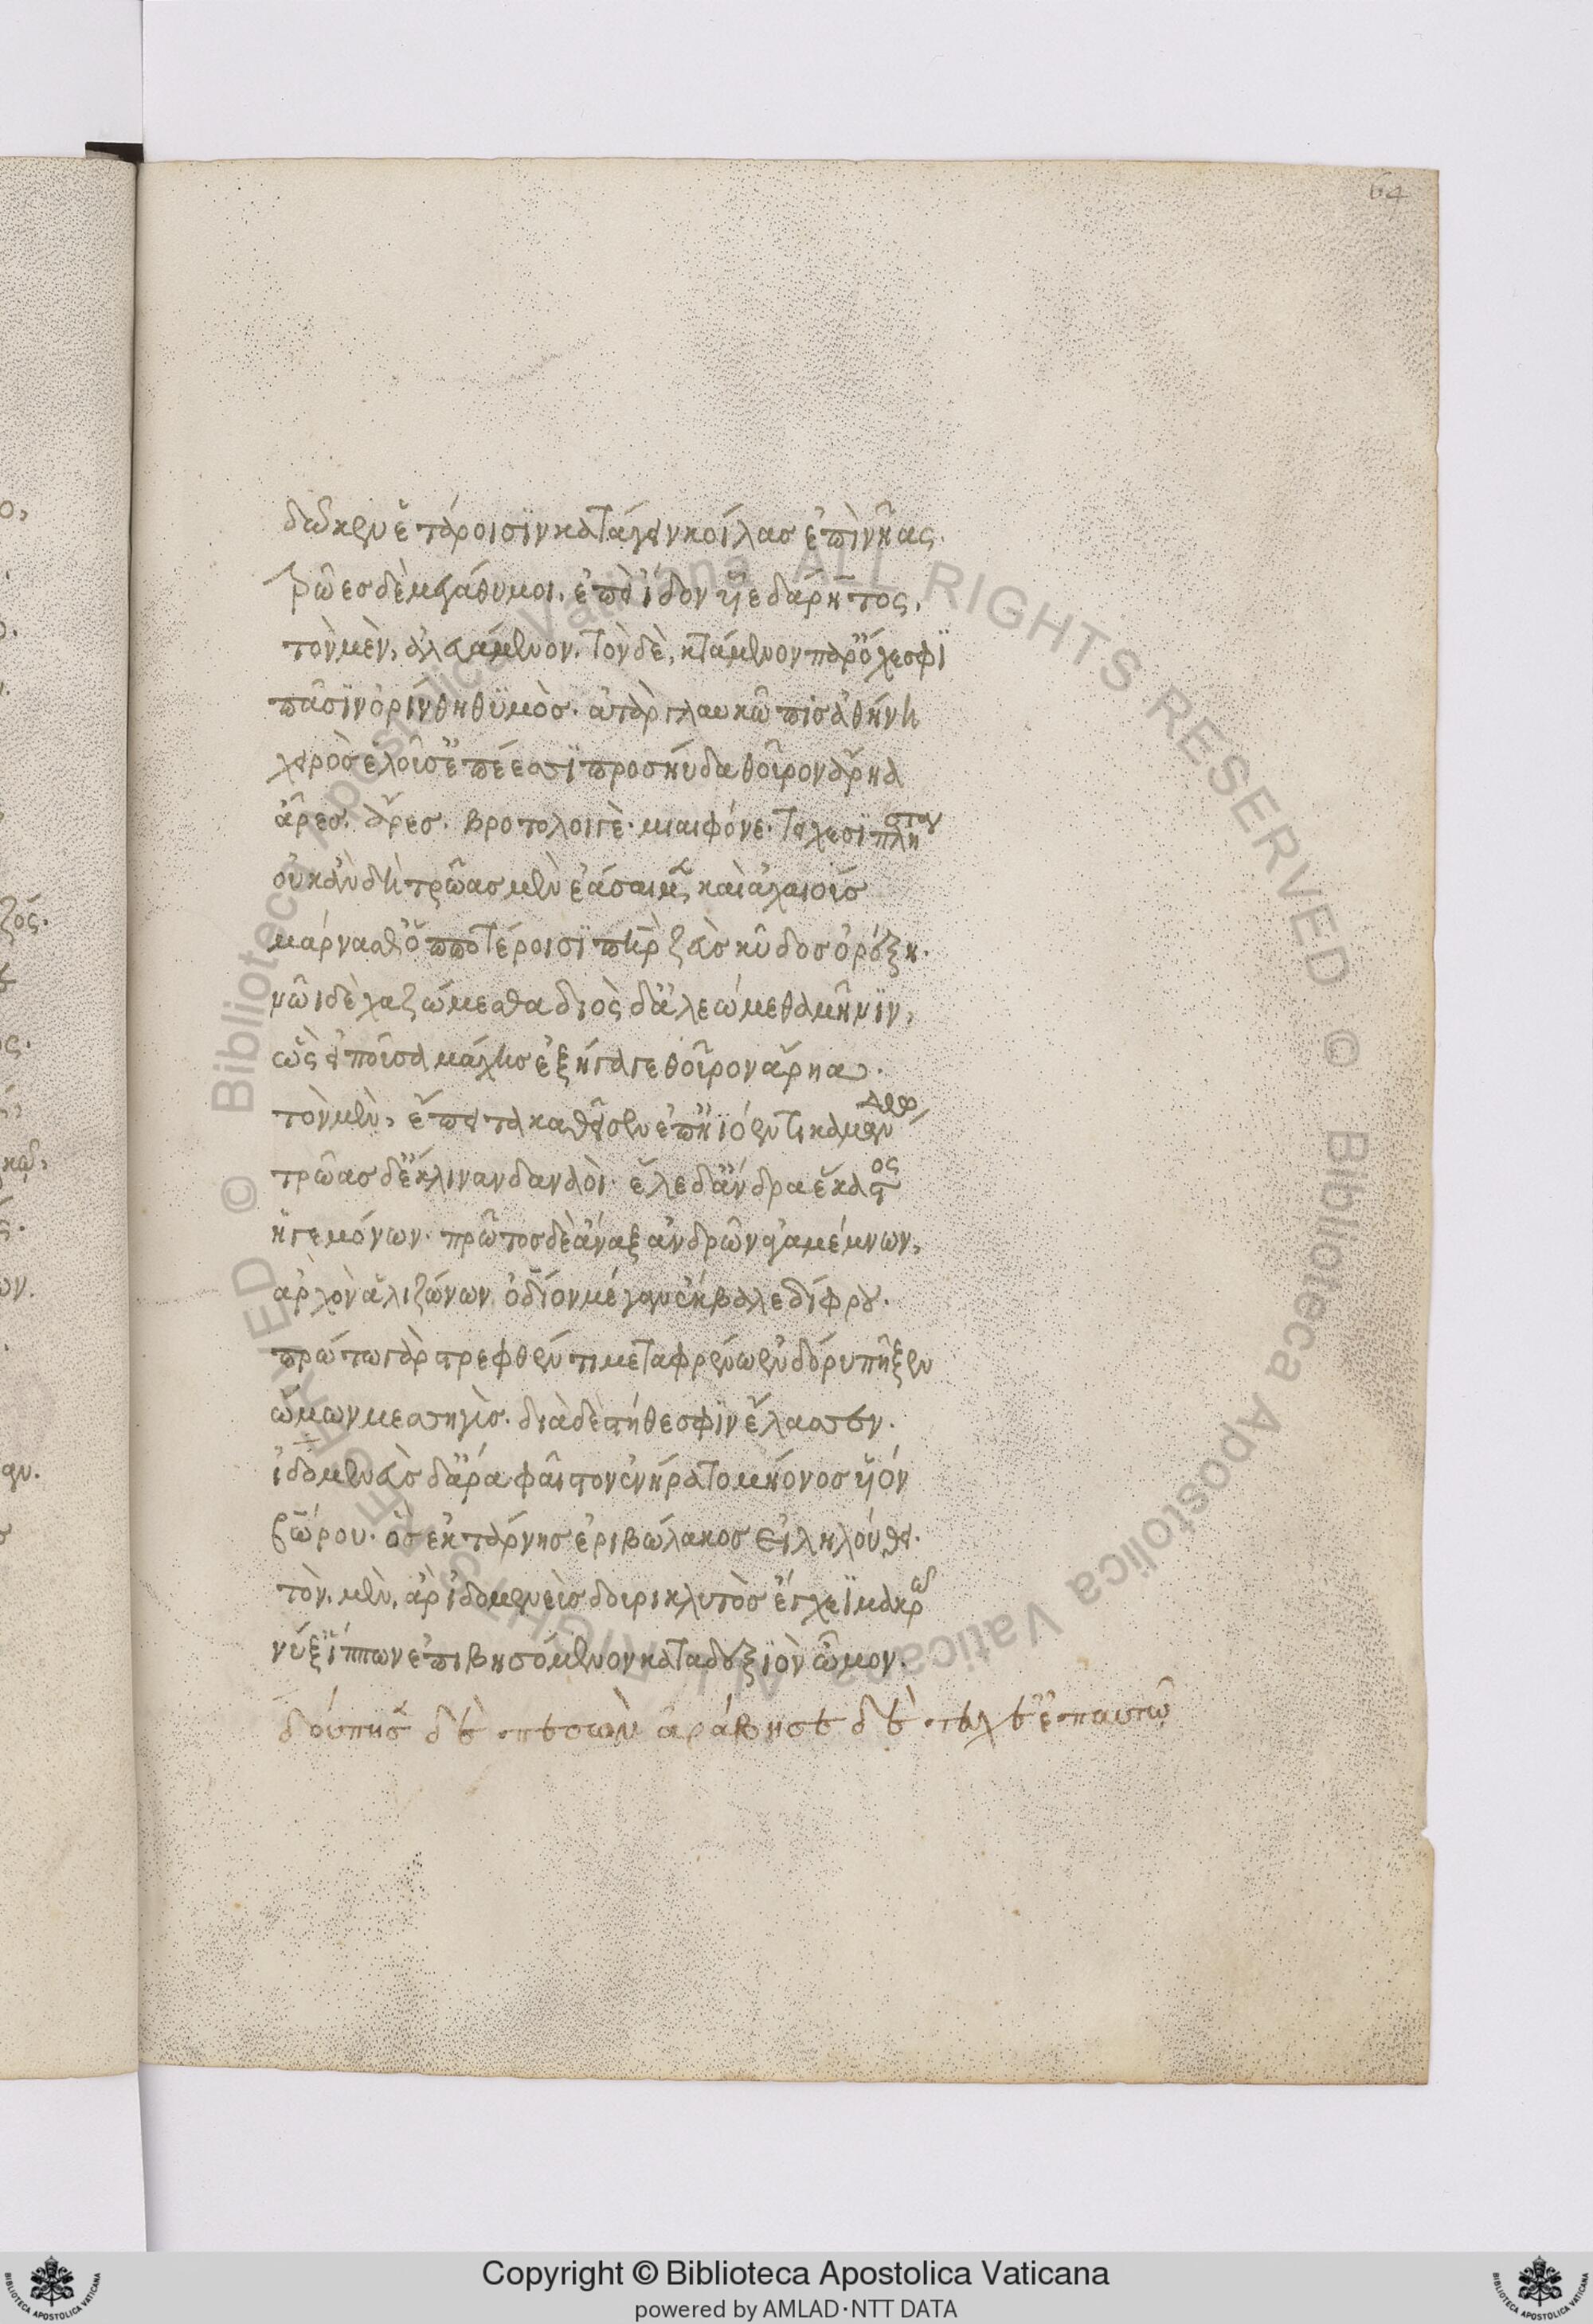 64
δῶκεν ἑτάροισϊν κατάγειν κοίλας ἐπὶ νῆας.
Τρῶες δὲ μεγάθυμοι. ἐπεὶ ἴδον υἷε δάρητος,
τὸν μὲν, ἀλευάμενον. τὸν δὲ, κτάμενον παρ' ὄχεσφϊ
πᾶσϊν ὀρίνθη θϋμὸς. ἀτὰρ γλαυκῶπις ἀθήνη
χειρὸς ἑλοῦσ' ἐπέεσσϊ προσηύδα θοῦρον ἄρηα
ἆρες. ἄρες. βροτολοιγὲ. μιαιφόνε. τειχεσϊπλη
οὐκ ἂν δὴ τρῶας μὲν ἐάσαιμεν καὶ ἀχαιοὺς
μάρνασθ' ὁπποτέροισϊ πατὴρ ζεὺς κῦδος ὀρέξη.
νῶι δὲ χαζώμεσθα διὸς δ' ἀλεώμεθα μῆνϊν,
ὣς εἰποῦσα μάχης ἐξήγαγε θοῦρον ἄρηα.
τὸν μὲν, ἔπειτα καθεῖσεν ἐπ' ἠιόεντι σκαμαν
τρῶας δ' ἔκλιναν δαναοὶ. ἕλε δ' ἄνδρα ἕκαστος
ἡγεμόνων. πρῶτος δὲ ἄναξ ἀνδρῶν ἀγαμέμνων,
ἀρχὸν ἁλιζώνων ὀδίον μέγαν ἔκβαλε δίφρου.
πρώτω γὰρ στρεφθέντι μεταφρένω ἐν δόρυ πῆξεν
ὤμων μεσσηγὺς. διὰ δὲ στήθεσφϊν ἔλασσεν.
ἰδομενεὺς δ' ἄρα φαῖστον ἐνήρατο μήονος υἱὸν
βώρου. ὃς ἐκ τάρνης ἐριβώλακος εἰληλούθει.
τὸν. μὲν, ἄρ' ἰδομενεὺς δουρικλυτὸς ἔγχεϊ μακρῶ
νύξ' ἵππων ἐπιβησόμενον κατὰ δεξϊὸν ὦμον.
δούπησεν δὲ πεσὼν ἀράβησε δὲ τεύχε' ἐπ' αυτῶ
Copyright © Biblioteca Apostolica Vaticana
powered by AMLAD·NTT DATA